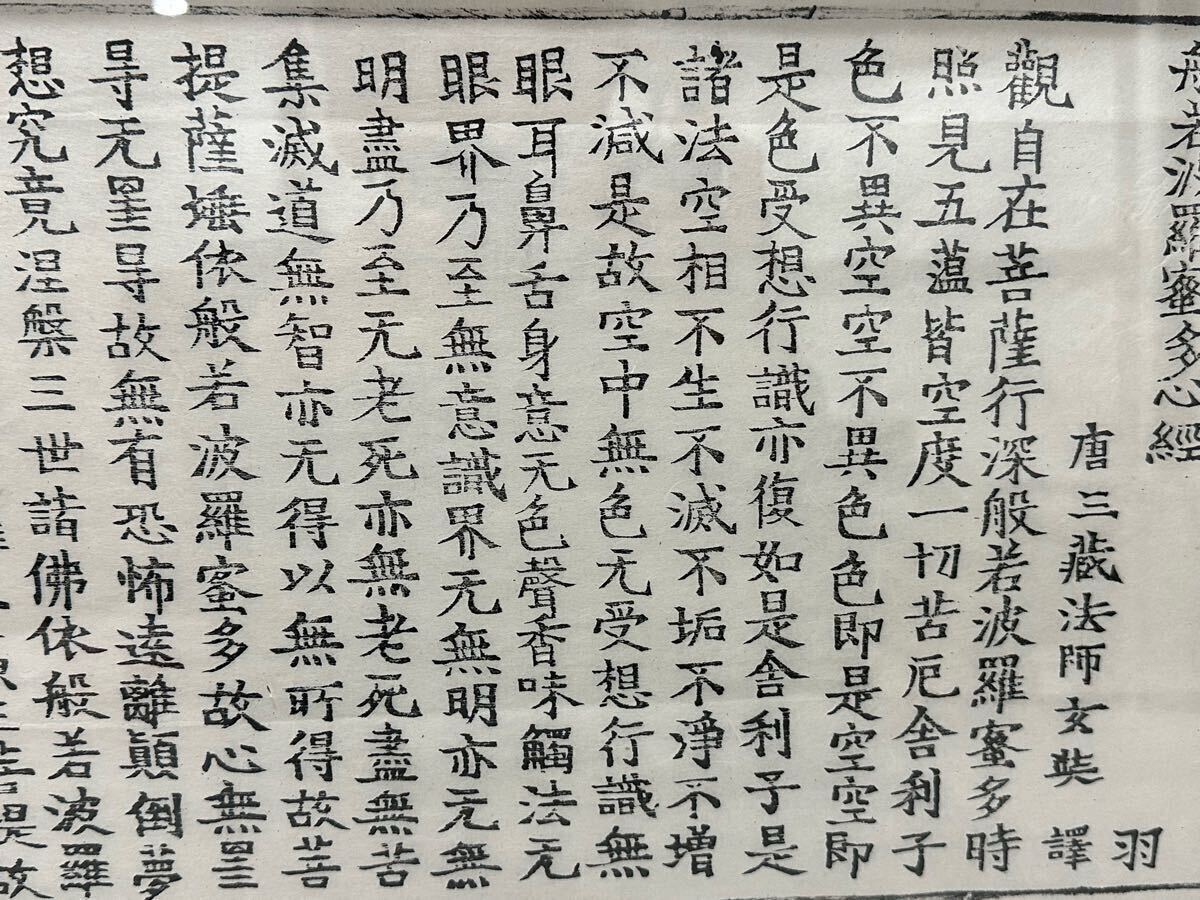 般若波羅蜜多心經 羽
唐三藏法師玄奘 譯
觀自在菩薩行深般若波羅蜜多時
照見五薀皆空度一切苦厄舍利子
色不異空空不異色色即是空空即
是色受想行識亦復如是舍利子是
諸法空相不生不滅不垢不淨不增
不減是故空中無色无受想行識無
眼耳鼻舌身意无色聲香味觸法无
眼界乃至無意識界无無明亦无無
明盡乃至无老死亦無老死盡無苦
集滅道無智亦无得以無所得故菩
提薩埵依般若波羅蜜多故心無罣
㝵无罣㝵故無有恐怖遠離顛倒夢
想究竟涅槃三世諸佛依般若波羅